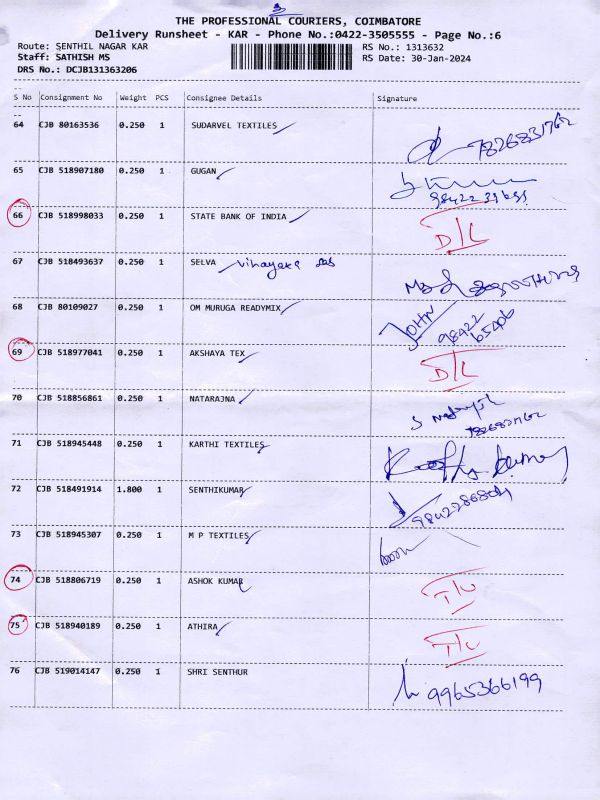 3
THE PROFESSIONAL COURIERS, COIMBATORE
Delivery Runsheet - KAR - Phone No.:0422-3505555 - Page No.:6
Route: SENTHIL NAGAR KAR RS No.: 1313632
Staff: SATHISH MS RS Date: 30-Jan-2024
DRS No.: DCJB131363206
S No Consignment No Weight PCS Consignee Details Signature
64 CJB 80163536 0.250 1 SUDARVEL TEXTILES
65 CJB 518907180 0.250 1 GUGAN
66 CJB 518998033 0.250 1 STATE BANK OF INDIA D/L
67 CJB 518493637 0.250 1 SELVA vinayaka
68 CJB 80109027 0.250 1 OM MURUGA READYMIX JOHN 98422 65406
69 CJB 518977041 0.250 1 AKSHAYA TEX D/L
70 CJB 518856861 0.250 1 NATARAJNA
71 CJB 518945448 0.250 1 KARTHI TEXTILES
72 CJB 518491914 1.800 1 SENTHIKUMAR
73 CJB 518945307 0.250 1 M P TEXTILES
74 CJB 518806719 0.250 1 ASHOK KUMAR
75 CJB 518940189 0.250 1 ATHIRA
76 CJB 519014147 0.250 1 SHRI SENTHUR 9965366199